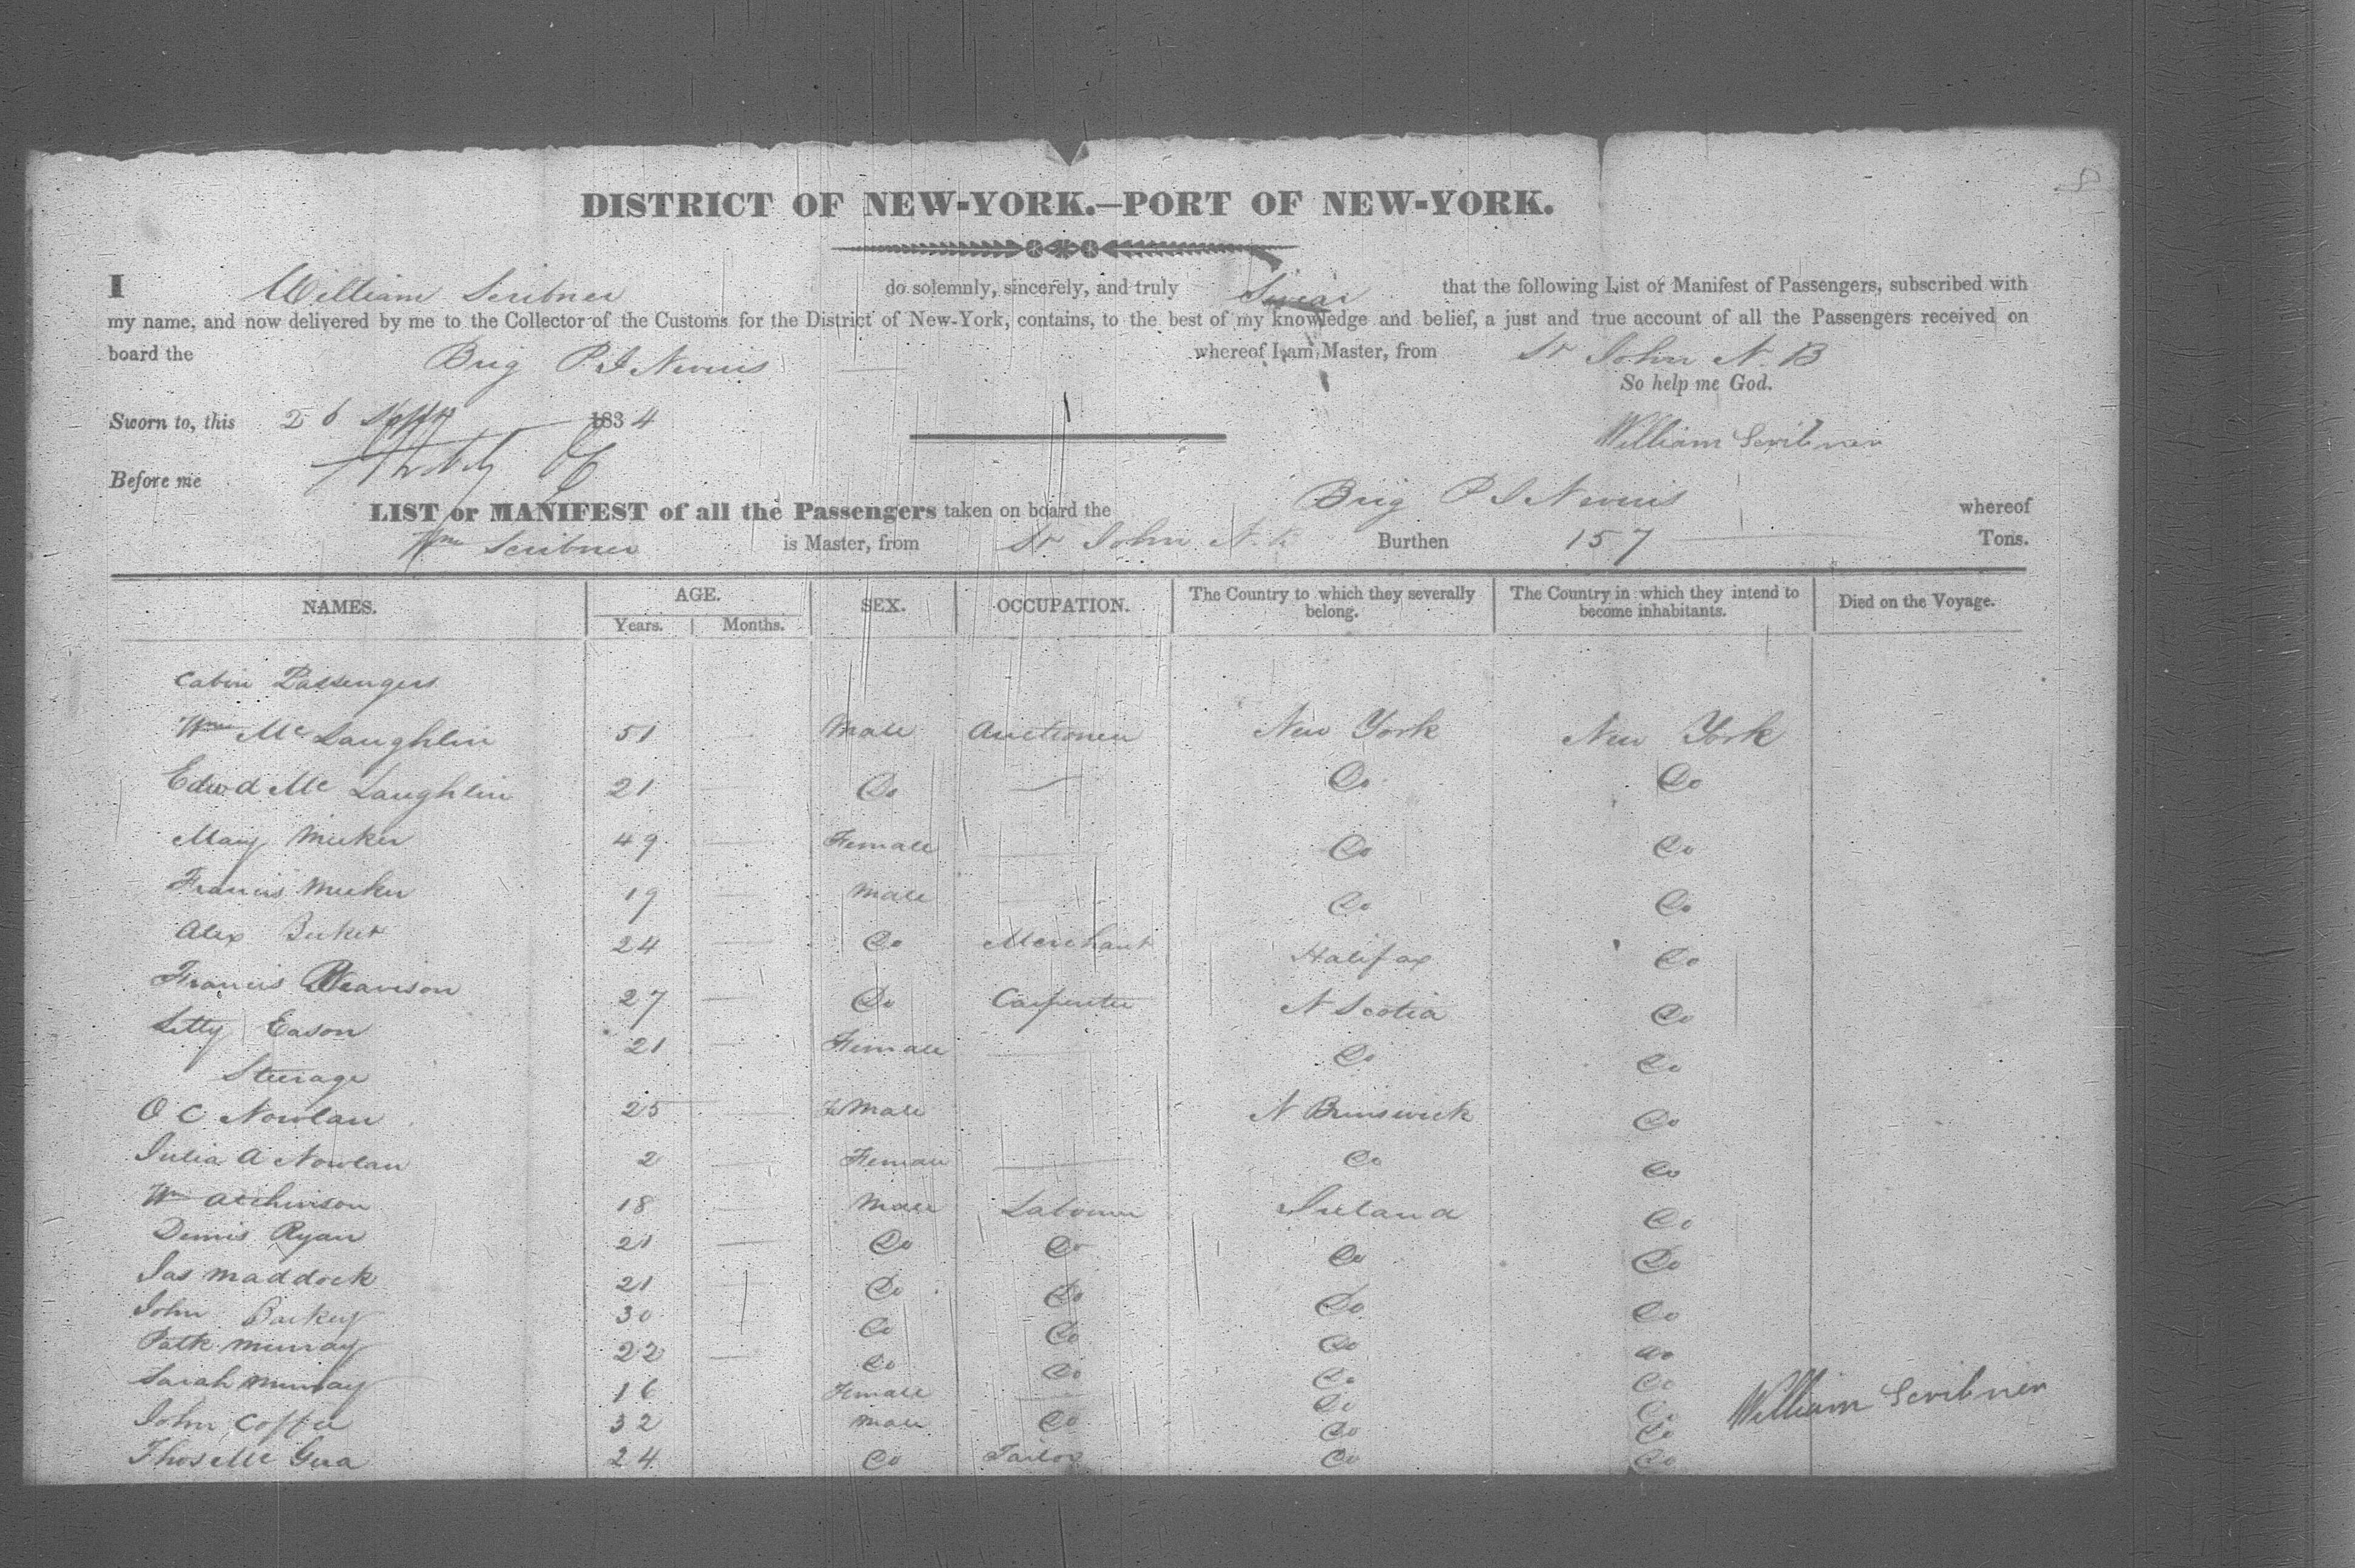 DISTRICT OF NEW-YORK.—PORT OF NEW-YORK.
I William Scribner do solemnly, sincerely, and truly Swear that the following List or Manifest of Passengers, subscribed with
my name, and now delivered by me to the Collector of the Customs for the District of New-York, contains, to the best of my knowledge and belief, a just and true account of all the Passengers received on
board the Brig P I Nevius whereof I am Master, from St John N. B
So help me God.
Sworn to, this 26 Sept 1834
William Scribner
Before me
LIST or MANIFEST of all the Passengers taken on board the Brig P I Nevius whereof
Wm Scribner is Master, from St John N. B Burthen 157 Tons.
NAMES. AGE. SEX. OCCUPATION. The Country to which they severally belong. The Country in which they intend to become inhabitants. Died on the Voyage.
Years. Months.
Cabin Passengers
Wm Mc Laughlin 51 Male Auctioneer New York New York
Edwd Mc Laughlin 21 Do — Do Do
Mary Meeker 49 — Female — Do Do
Francis Meeker 19 — Male — Do Do
Alex 24 — Do Merchant Halifax Do
Francis 27 — Do Carpenter N Scotia Do
Letty Eason 21 — Female — Do Do
Steerage
O C Nowlan 25 — FeMale N Brunswick Do
Julia A Nowlan 2 — Female — Do Do
Wm Atchinson 18 — Male Labourer Ireland Do
Dennis Ryan 21 — Do Do Do Do
Jas Maddock 21 — Do Do Do Do
John Barkey 30 Do Do Do Do
Patk Murray 22 — Do Do Do Do
Sarah Murray 16 Female — Do Do
John Coffee 32 Male Do Do Do
Thos Mc Gra 24 Do Tailor Do Do
William Scribner